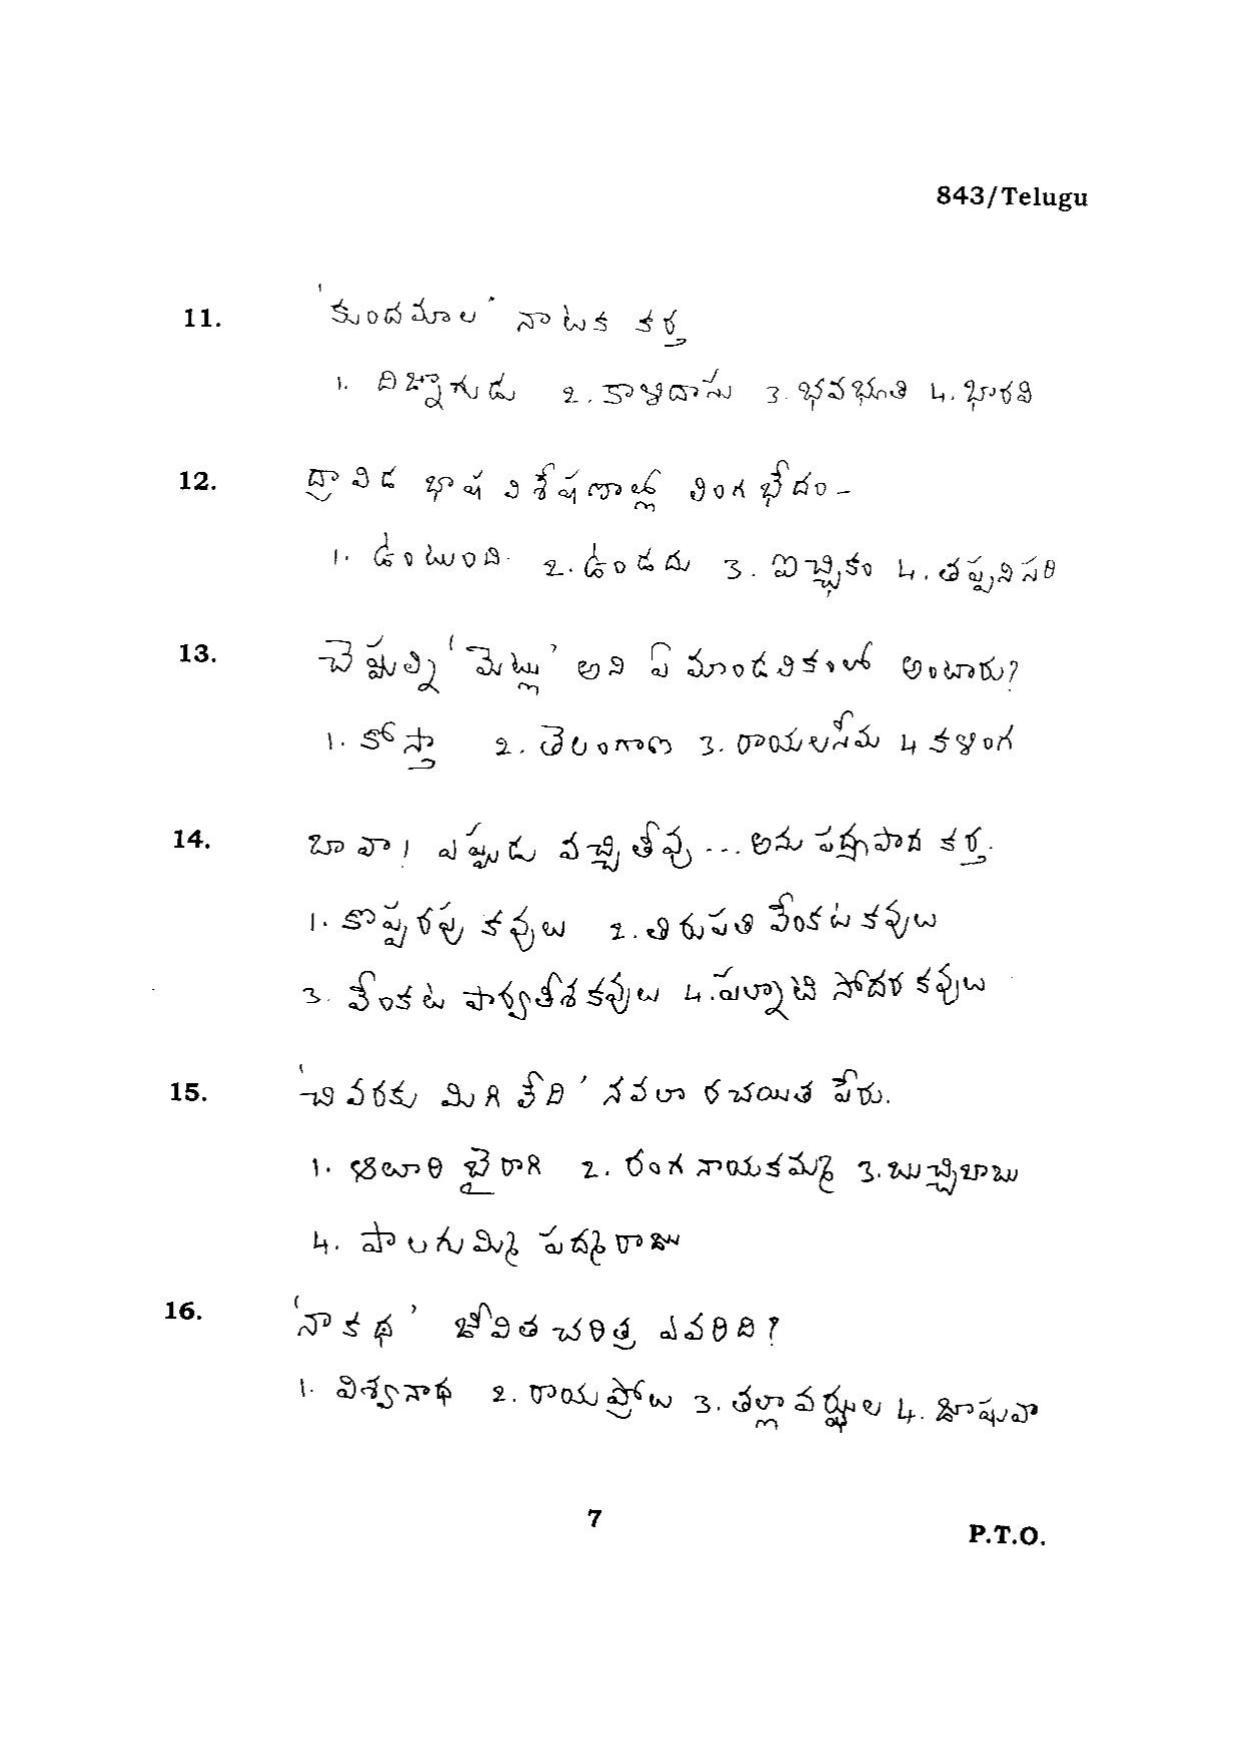 843/Telugu
11. 'కుందమాల' నాటక కర్త
1. దిజ్నాగుడు 2. కాళిదాసు 3. భవభూతి 4. భారవి
12. ద్రావిడ భాష విశేషణాల్లో లింగభేదం-
1. ఉంటుంది 2. ఉండదు 3. ఐచ్ఛికం 4. తప్పనిసరి
13. చెప్పుల్ని 'మెట్లు' అని ఏ మాండలికంలో అంటారు?
1. కోస్తా 2. తెలంగాణ 3. రాయలసీమ 4 కళింగ
14. బావా! ఎప్పుడు వచ్చితీవు ... అను పద్యపాద కర్త.
1. కొప్పరపు కవులు 2. తిరుపతి వేంకటకవులు
3. వేంకట పార్వతీశకవులు 4. పల్నాటి సోదరకవులు
15. 'చివరకు మిగిలేది' నవలా రచయిత పేరు.
1. ఆలూరి బైరాగి 2. రంగనాయకమ్మ 3. బుచ్చిబాబు
4. పాలగుమ్మి పద్మరాజు
16. 'నా కథ' జీవిత చరిత్ర ఎవరిది?
1. విశ్వనాథ 2. రాయప్రోలు 3. తల్లావర్ఝుల 4. జాషువా
7
P.T.O.